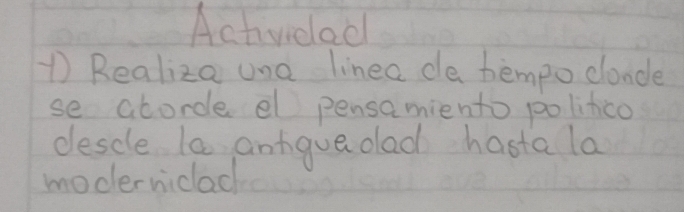 Actividad
1) Realiza una linea de tiempo donde
se aborde el pensamiento politico
desde la antiguedad hasta la
modernidad